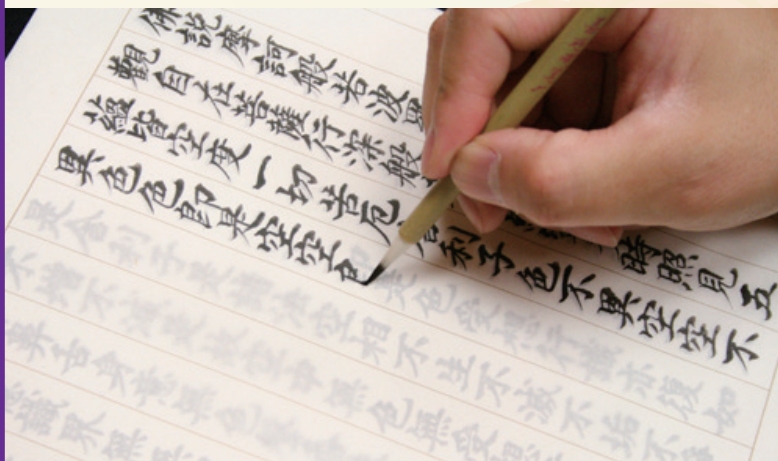 佛說摩訶般若波
觀自在菩薩行深般時照見五
蘊皆空度一切苦厄利子色不異空空不
異色色即是空空是色受想行識亦復如
是舍利子是諸法空相不生不滅不垢不
不增不減是故空中無色無受想
鼻舌身意無色聲
識界無無